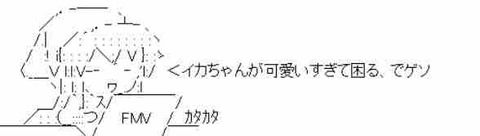 ＜イカちゃんが可愛いすぎて困る、でゲソ
FMV ｶﾀｶﾀ